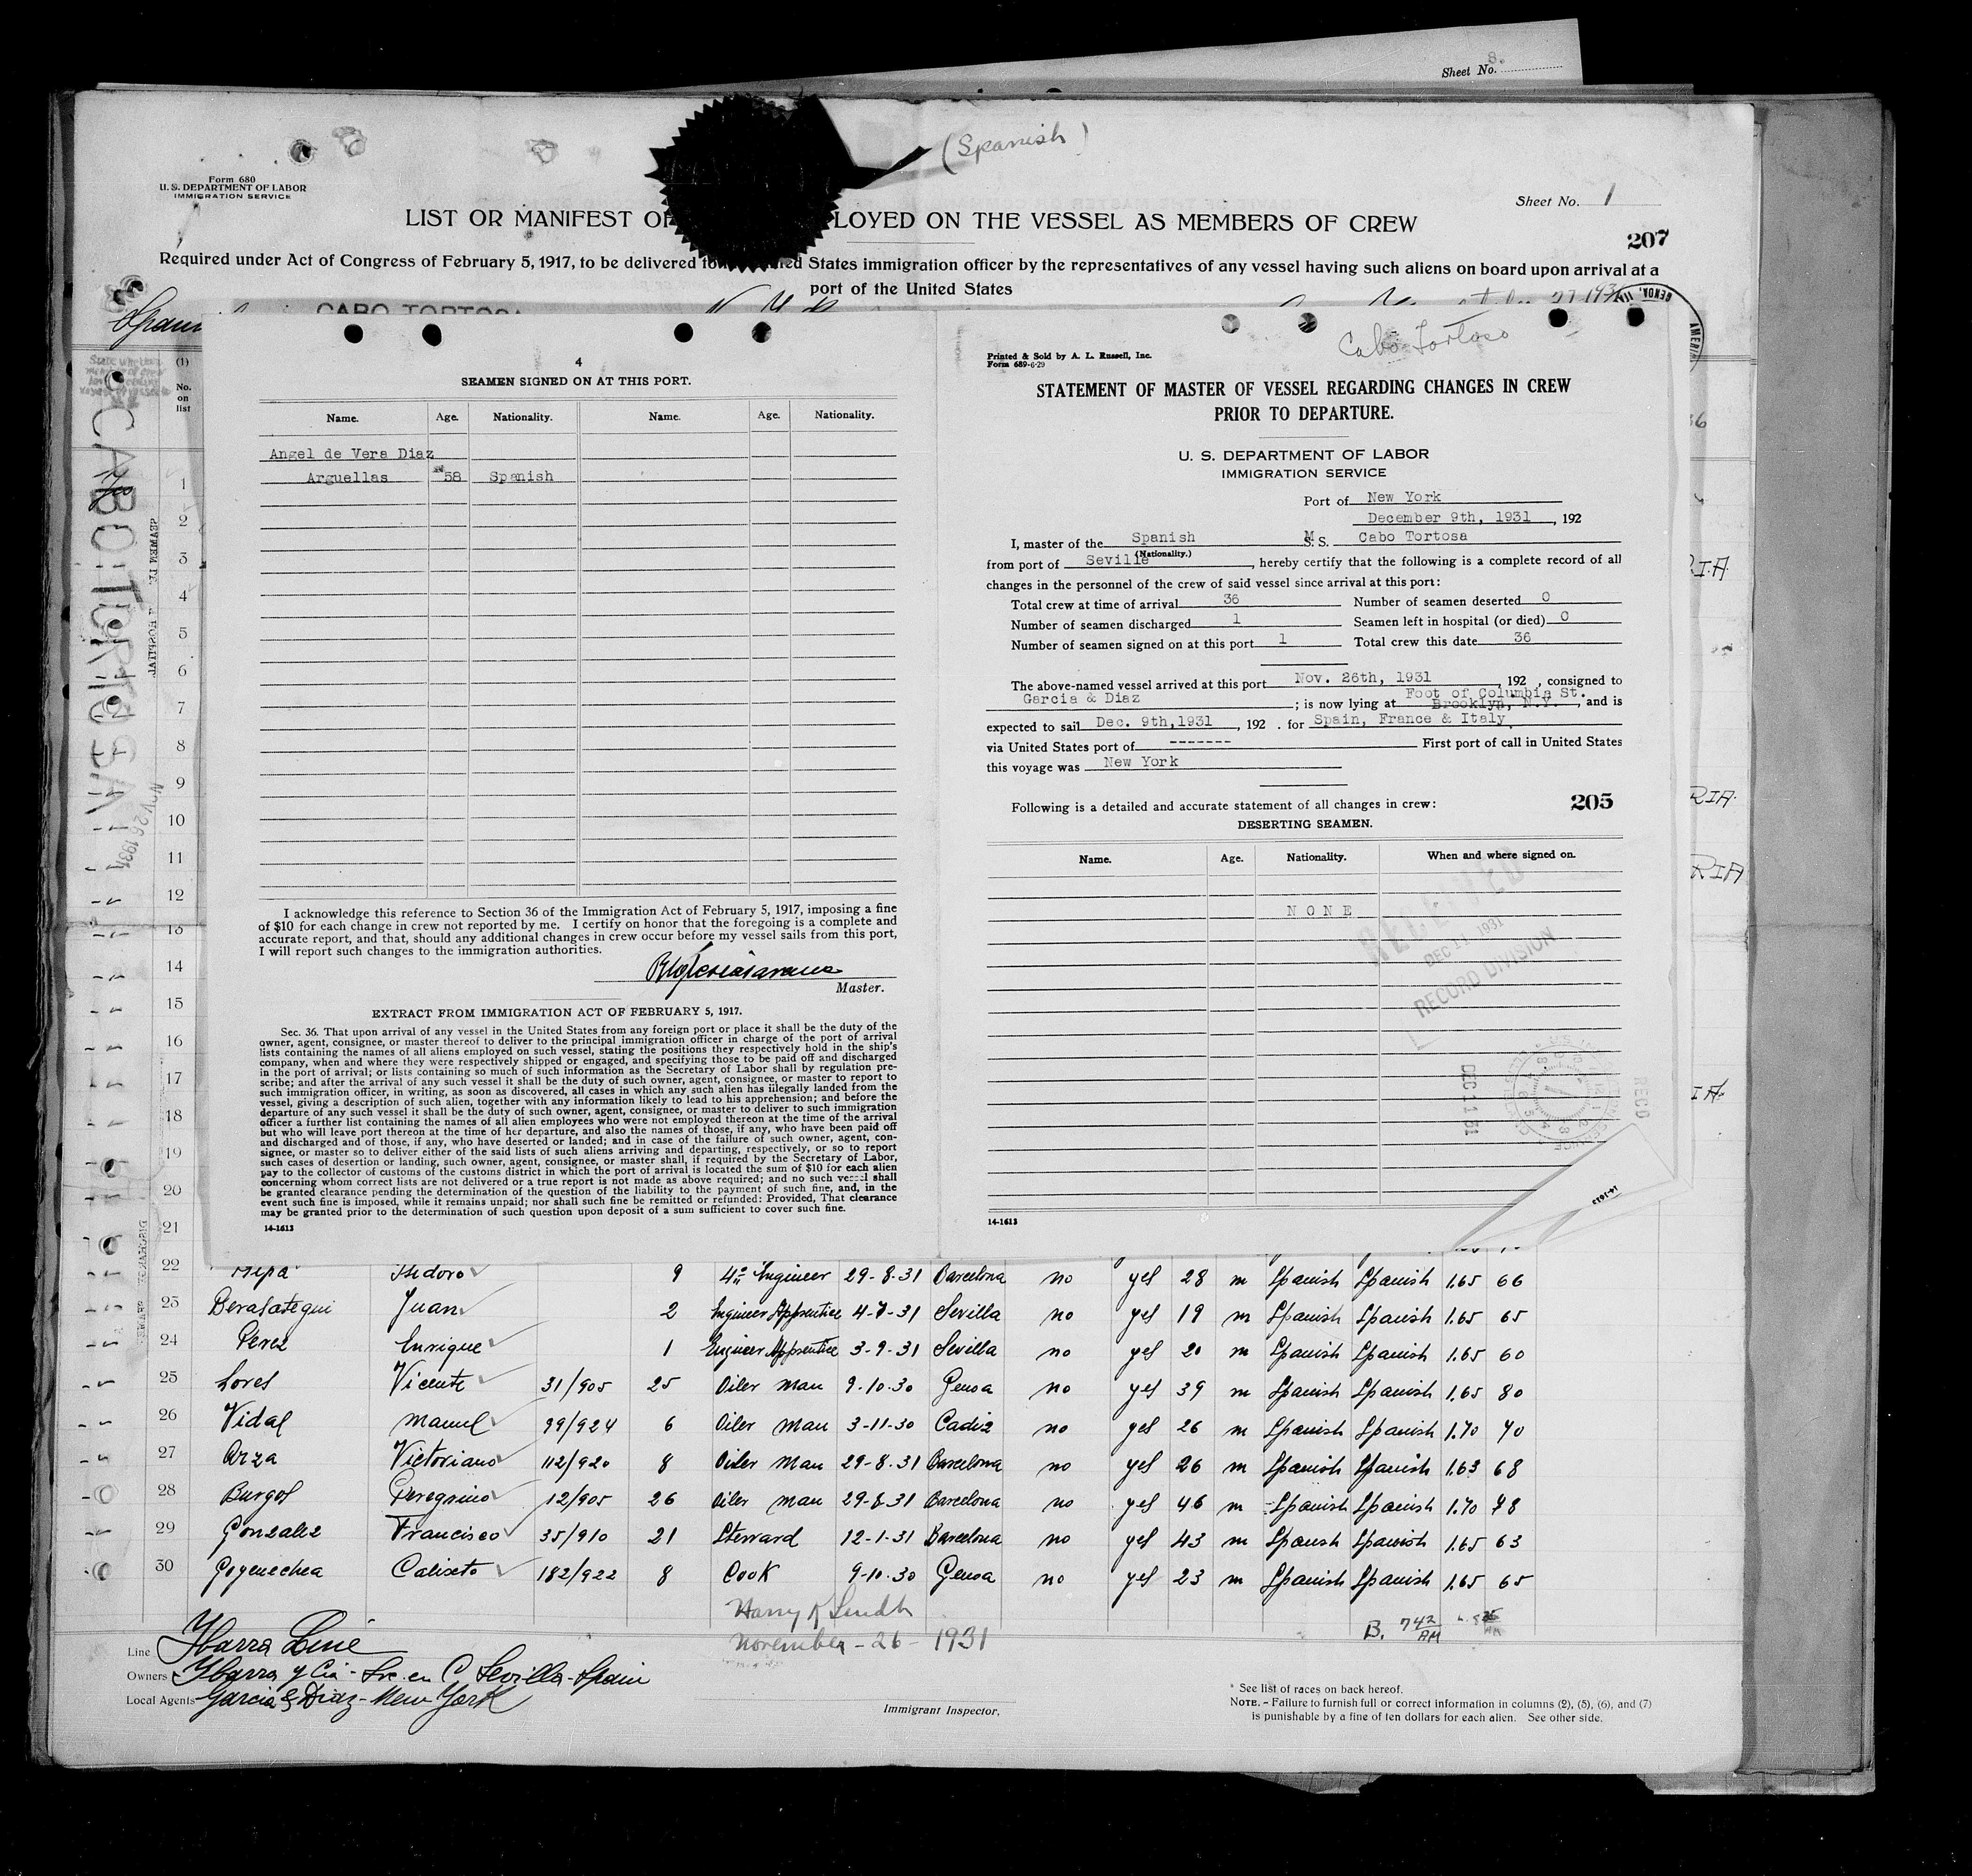 Sheet No. 8.
(Spanish)
Form 680
U. S. DEPARTMENT OF LABOR
IMMIGRATION SERVICE
Sheet No. 1
LIST OR MANIFEST OF LOYED ON THE VESSEL AS MEMBERS OF CREW
207
Required under Act of Congress of February 5, 1917, to be delivered to States immigration officer by the representatives of any vessel having such aliens on board upon arrival at a
port of the United States
CABO TORTOSA
(1)
No.
on
list
CABO TORTOSA
NOV 26 1931
4
SEAMEN SIGNED ON AT THIS PORT.
Name. Age. Nationality. Name. Age. Nationality.
Angel de Vera Diaz
Arguellas 58 Spanish
I acknowledge this reference to Section 36 of the Immigration Act of February 5, 1917, imposing a fine
of $10 for each change in crew not reported by me. I certify on honor that the foregoing is a complete and
accurate report, and that, should any additional changes in crew occur before my vessel sails from this port,
I will report such changes to the immigration authorities.
Master.
EXTRACT FROM IMMIGRATION ACT OF FEBRUARY 5, 1917.
Sec. 36. That upon arrival of any vessel in the United States from any foreign port or place it shall be the duty of the
owner, agent, consignee, or master thereof to deliver to the principal immigration officer in charge of the port of arrival
lists containing the names of all aliens employed on such vessel, stating the positions they respectively hold in the ship's
company, when and where they were respectively shipped or engaged, and specifying those to be paid off and discharged
in the port of arrival; or lists containing so much of such information as the Secretary of Labor shall by regulation pre-
scribe; and after the arrival of any such vessel it shall be the duty of such owner, agent, consignee, or master to report to
such immigration officer, in writing, as soon as discovered, all cases in which any such alien has illegally landed from the
vessel, giving a description of such alien, together with any information likely to lead to his apprehension; and before the
departure of any such vessel it shall be the duty of such owner, agent, consignee, or master to deliver to such immigration
officer a further list containing the names of all alien employees who were not employed thereon at the time of the arrival
but who will leave port thereon at the time of her departure, and also the names of those, if any, who have been paid off
and discharged and of those, if any, who have deserted or landed; and in case of the failure of such owner, agent, con-
signee, or master so to deliver either of the said lists of such aliens arriving and departing, respectively, or so to report
such cases of desertion or landing, such owner, agent, consignee, or master shall, if required by the Secretary of Labor,
pay to the collector of customs of the customs district in which the port of arrival is located the sum of $10 for each alien
concerning whom correct lists are not delivered or a true report is not made as above required; and no such vessel shall
be granted clearance pending the determination of the question of the liability to the payment of such fine, and, in the
event such fine is imposed, while it remains unpaid; nor shall such fine be remitted or refunded: Provided, That clearance
may be granted prior to the determination of such question upon deposit of a sum sufficient to cover such fine.
14-1613
Cabo Tortoso
Printed & Sold by A. L. Russell, Inc.
Form 689-6-29
STATEMENT OF MASTER OF VESSEL REGARDING CHANGES IN CREW
PRIOR TO DEPARTURE.
U. S. DEPARTMENT OF LABOR
IMMIGRATION SERVICE
Port of New York
December 9th, 1931, 192
I, master of the Spanish M S. S. Cabo Tortosa
(Nationality.)
from port of Seville, hereby certify that the following is a complete record of all
changes in the personnel of the crew of said vessel since arrival at this port:
Total crew at time of arrival 36 Number of seamen deserted 0
Number of seamen discharged 1 Seamen left in hospital (or died) 0
Number of seamen signed on at this port 1 Total crew this date 36
The above-named vessel arrived at this port Nov. 26th, 1931, 192 , consigned to
Garcia & Diaz; is now lying at Foot of Columbia St. Brooklyn, N.Y., and is
expected to sail Dec. 9th, 1931, 192 . for Spain, France & Italy.
via United States port of ------- First port of call in United States
this voyage was New York
Following is a detailed and accurate statement of all changes in crew: 205
DESERTING SEAMEN.
Name. Age. Nationality. When and where signed on.
NONE
RECEIVED
DEC 11 1931
RECORD DIVISION
DEC 11 31
REC'D
14-1613
14-1613
1
2
3
4
5
6
7
8
9
10
11
12
13
14
15
16
17
18
19
20
21
22 Isidoro 9 4º Engineer 29-8-31 Barcelona no yes 28 m Spanish Spanish 1.65 66
23 Berasategui Juan 2 Engineer Apprentice 4-7-31 Sevilla no yes 19 m Spanish Spanish 1.65 65
24 Perez Enrique 1 Engineer Apprentice 3-9-31 Sevilla no yes 20 m Spanish Spanish 1.65 60
25 Lores Vicente 31/905 25 Oiler man 9-10-30 Genoa no yes 39 m Spanish Spanish 1.65 80
26 Vidal Manuel 99/924 6 Oiler man 3-11-30 Cadiz no yes 26 m Spanish Spanish 1.70 70
27 Arza Victoriano 112/920 8 Oiler man 29-8-31 Barcelona no yes 26 m Spanish Spanish 1.63 68
28 Burgos Peregrino 12/905 26 Oiler man 29-8-31 Barcelona no yes 46 m Spanish Spanish 1.70 78
29 Gonzalez Francisco 35/910 21 Steward 12-1-31 Barcelona no yes 43 m Spanish Spanish 1.65 63
30 Goyenechea Calixto 182/922 8 Cook 9-10-30 Genoa no yes 23 m Spanish Spanish 1.65 65
November-26-1931
B. 742 AM
Line Ybarra Line
Owners Ybarra y Cia - Sevilla-Spain
Local Agents Garcia & Diaz - New York
Immigrant Inspector.
* See list of races on back hereof.
NOTE. - Failure to furnish full or correct information in columns (2), (5), (6), and (7)
is punishable by a fine of ten dollars for each alien. See other side.